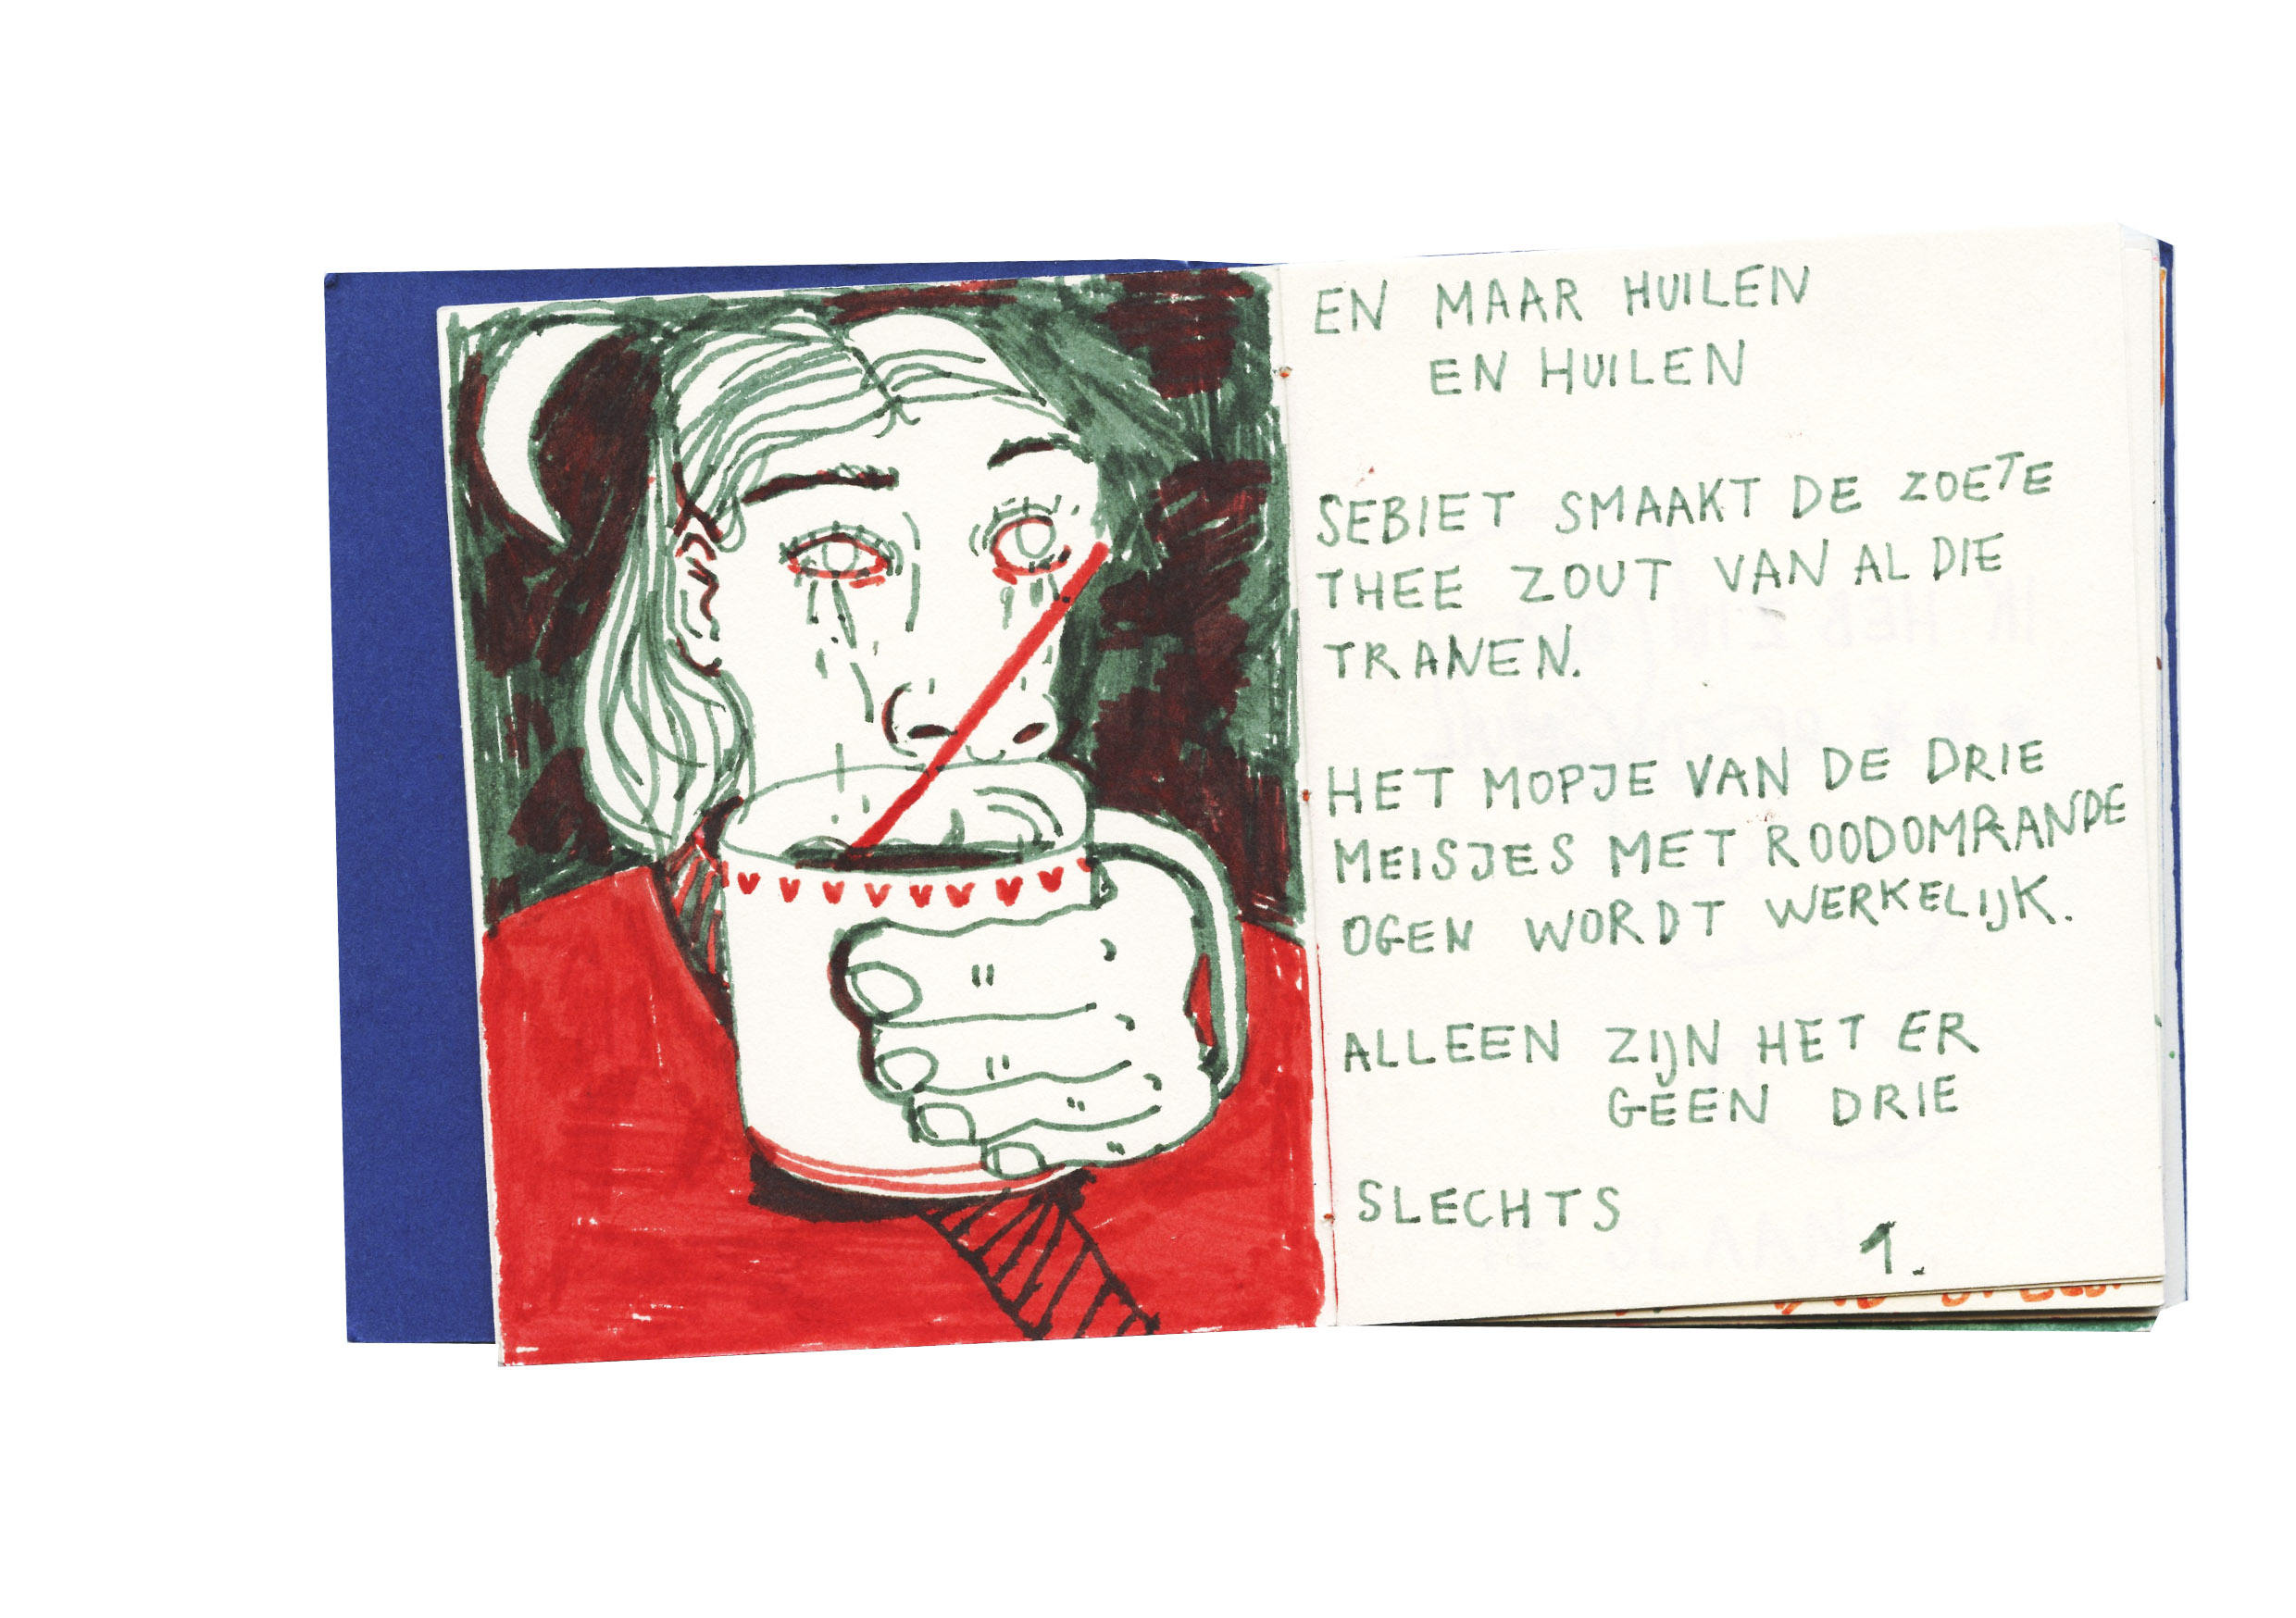 EN MAAR HUILEN
EN HUILEN
SEBIET SMAAKT DE ZOETE
THEE ZOUT VAN AL DIE
TRANEN.
HET MOPJE VAN DE DRIE
MEISJES MET ROODOMRANDE
OGEN WORDT WERKELIJK.
ALLEEN ZIJN HET ER
GEEN DRIE
SLECHTS
1.